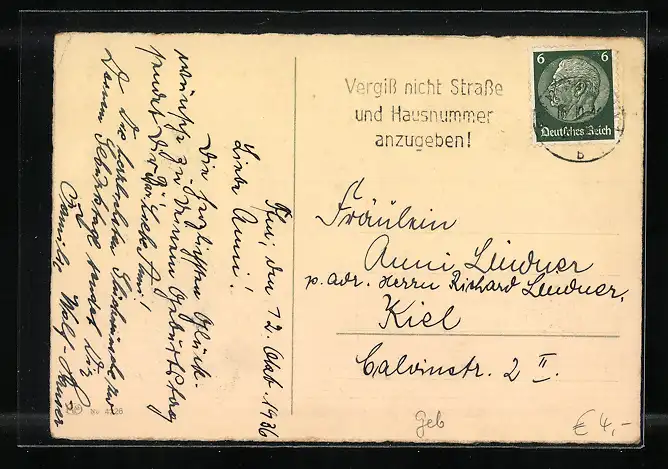 Kiel, den 12. Okt. 1936
Liebe Anni!
Die herzlichsten Glück-
wünsche zu Deinem Geburtstag
sendet Dir
Die herzlichsten Glückwünsche zu
Deinem Geburtstage sendet Dir
Familie
Nr. 4226
Vergiß nicht Straße
und Hausnummer
anzugeben!
6 6
Deutsches Reich
b
Fräulein
Anni Lindner
p. adr. Herrn Richard Lindner,
Kiel
Calvinstr. 2 II.
Geb
€ 4,-